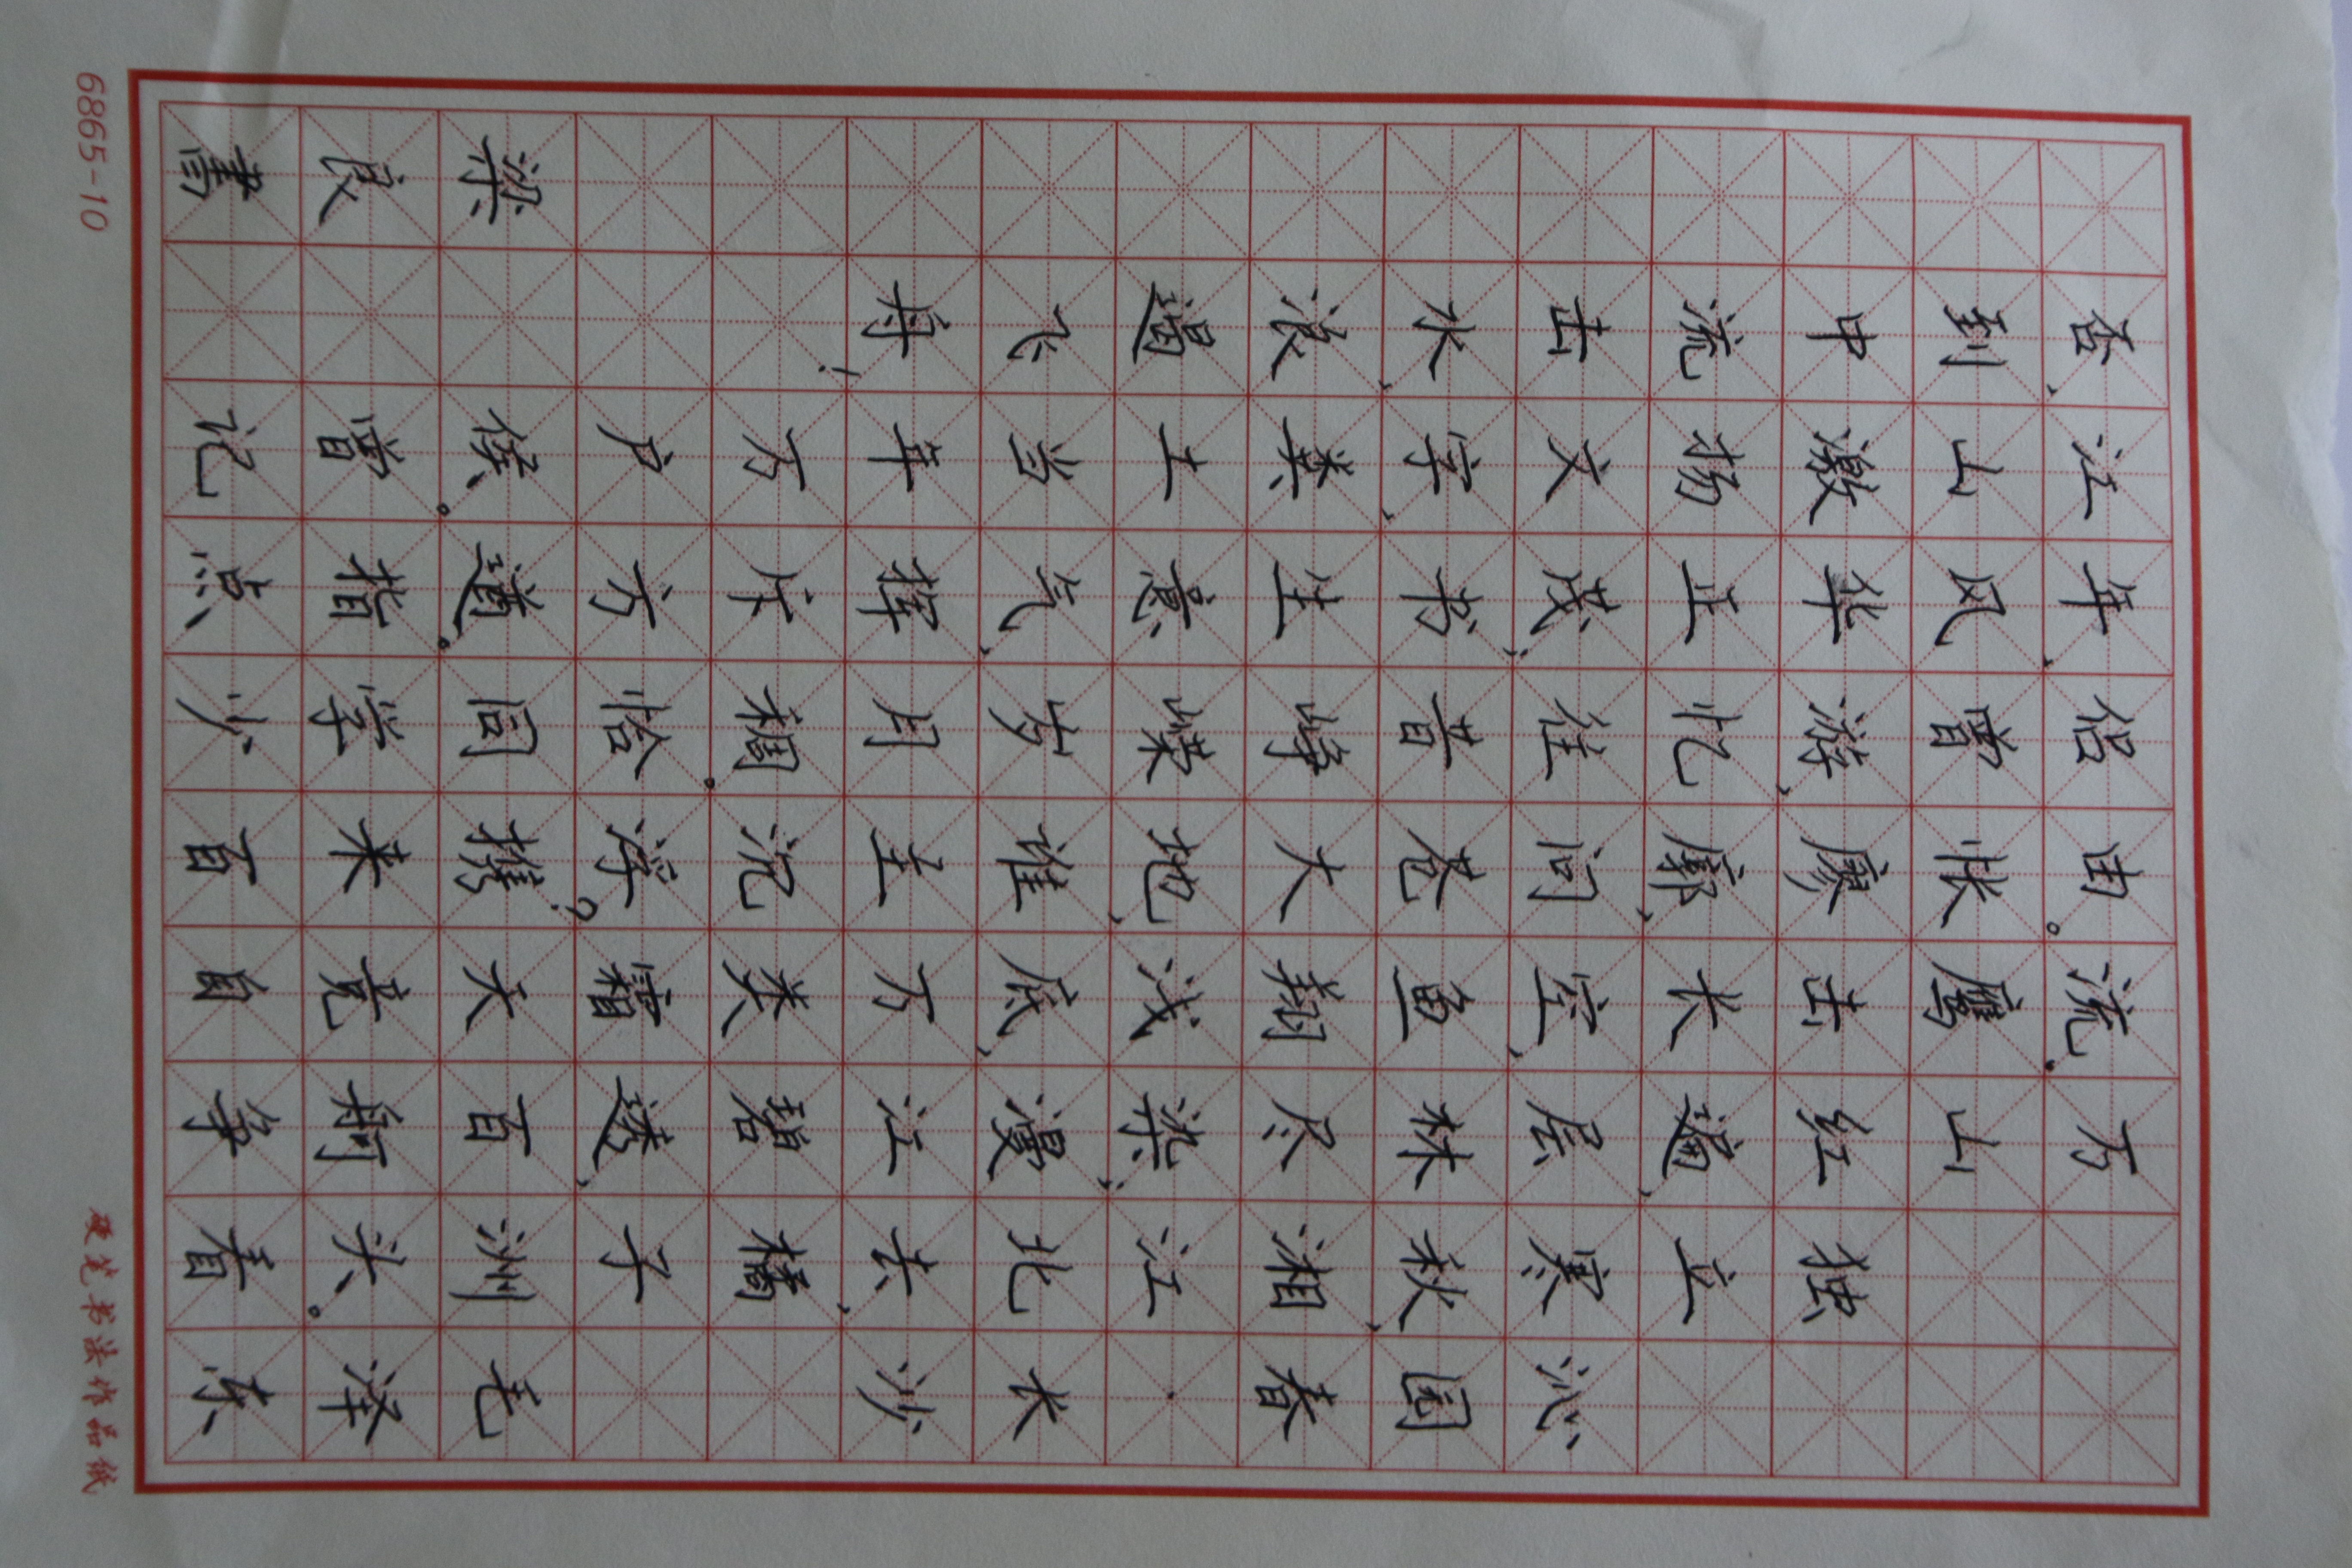 沁园春·长沙 毛泽东
独立寒秋,湘江北去,橘子洲头。看
万山红遍,层林尽染;漫江碧透,百舸争
流。鹰击长空,鱼翔浅底,万类霜天竞自
由。怅廖廓,问苍大地,谁主沉浮?携来百
侣曾游,忆往昔峥嵘岁月稠。恰同学少
年,风华正茂;书生意气,挥斥方遒。指点
江山,激扬文字,粪土当年万户侯。曾记
否,到中流击水,浪遏飞舟!
梁良書
6865-10
硬笔书法作品纸